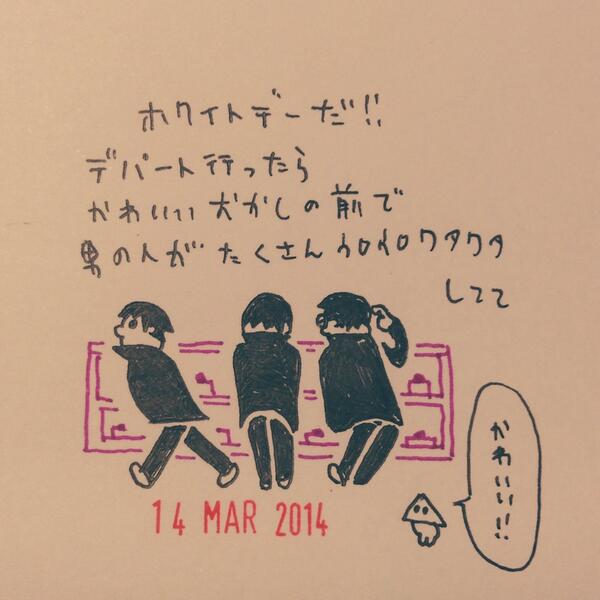 ホワイトデーだ!!
デパート行ったら
かわいいおかしの前で
男の人がたくさんウロウロワタワタ
してて
かわいい!!
14 MAR 2014